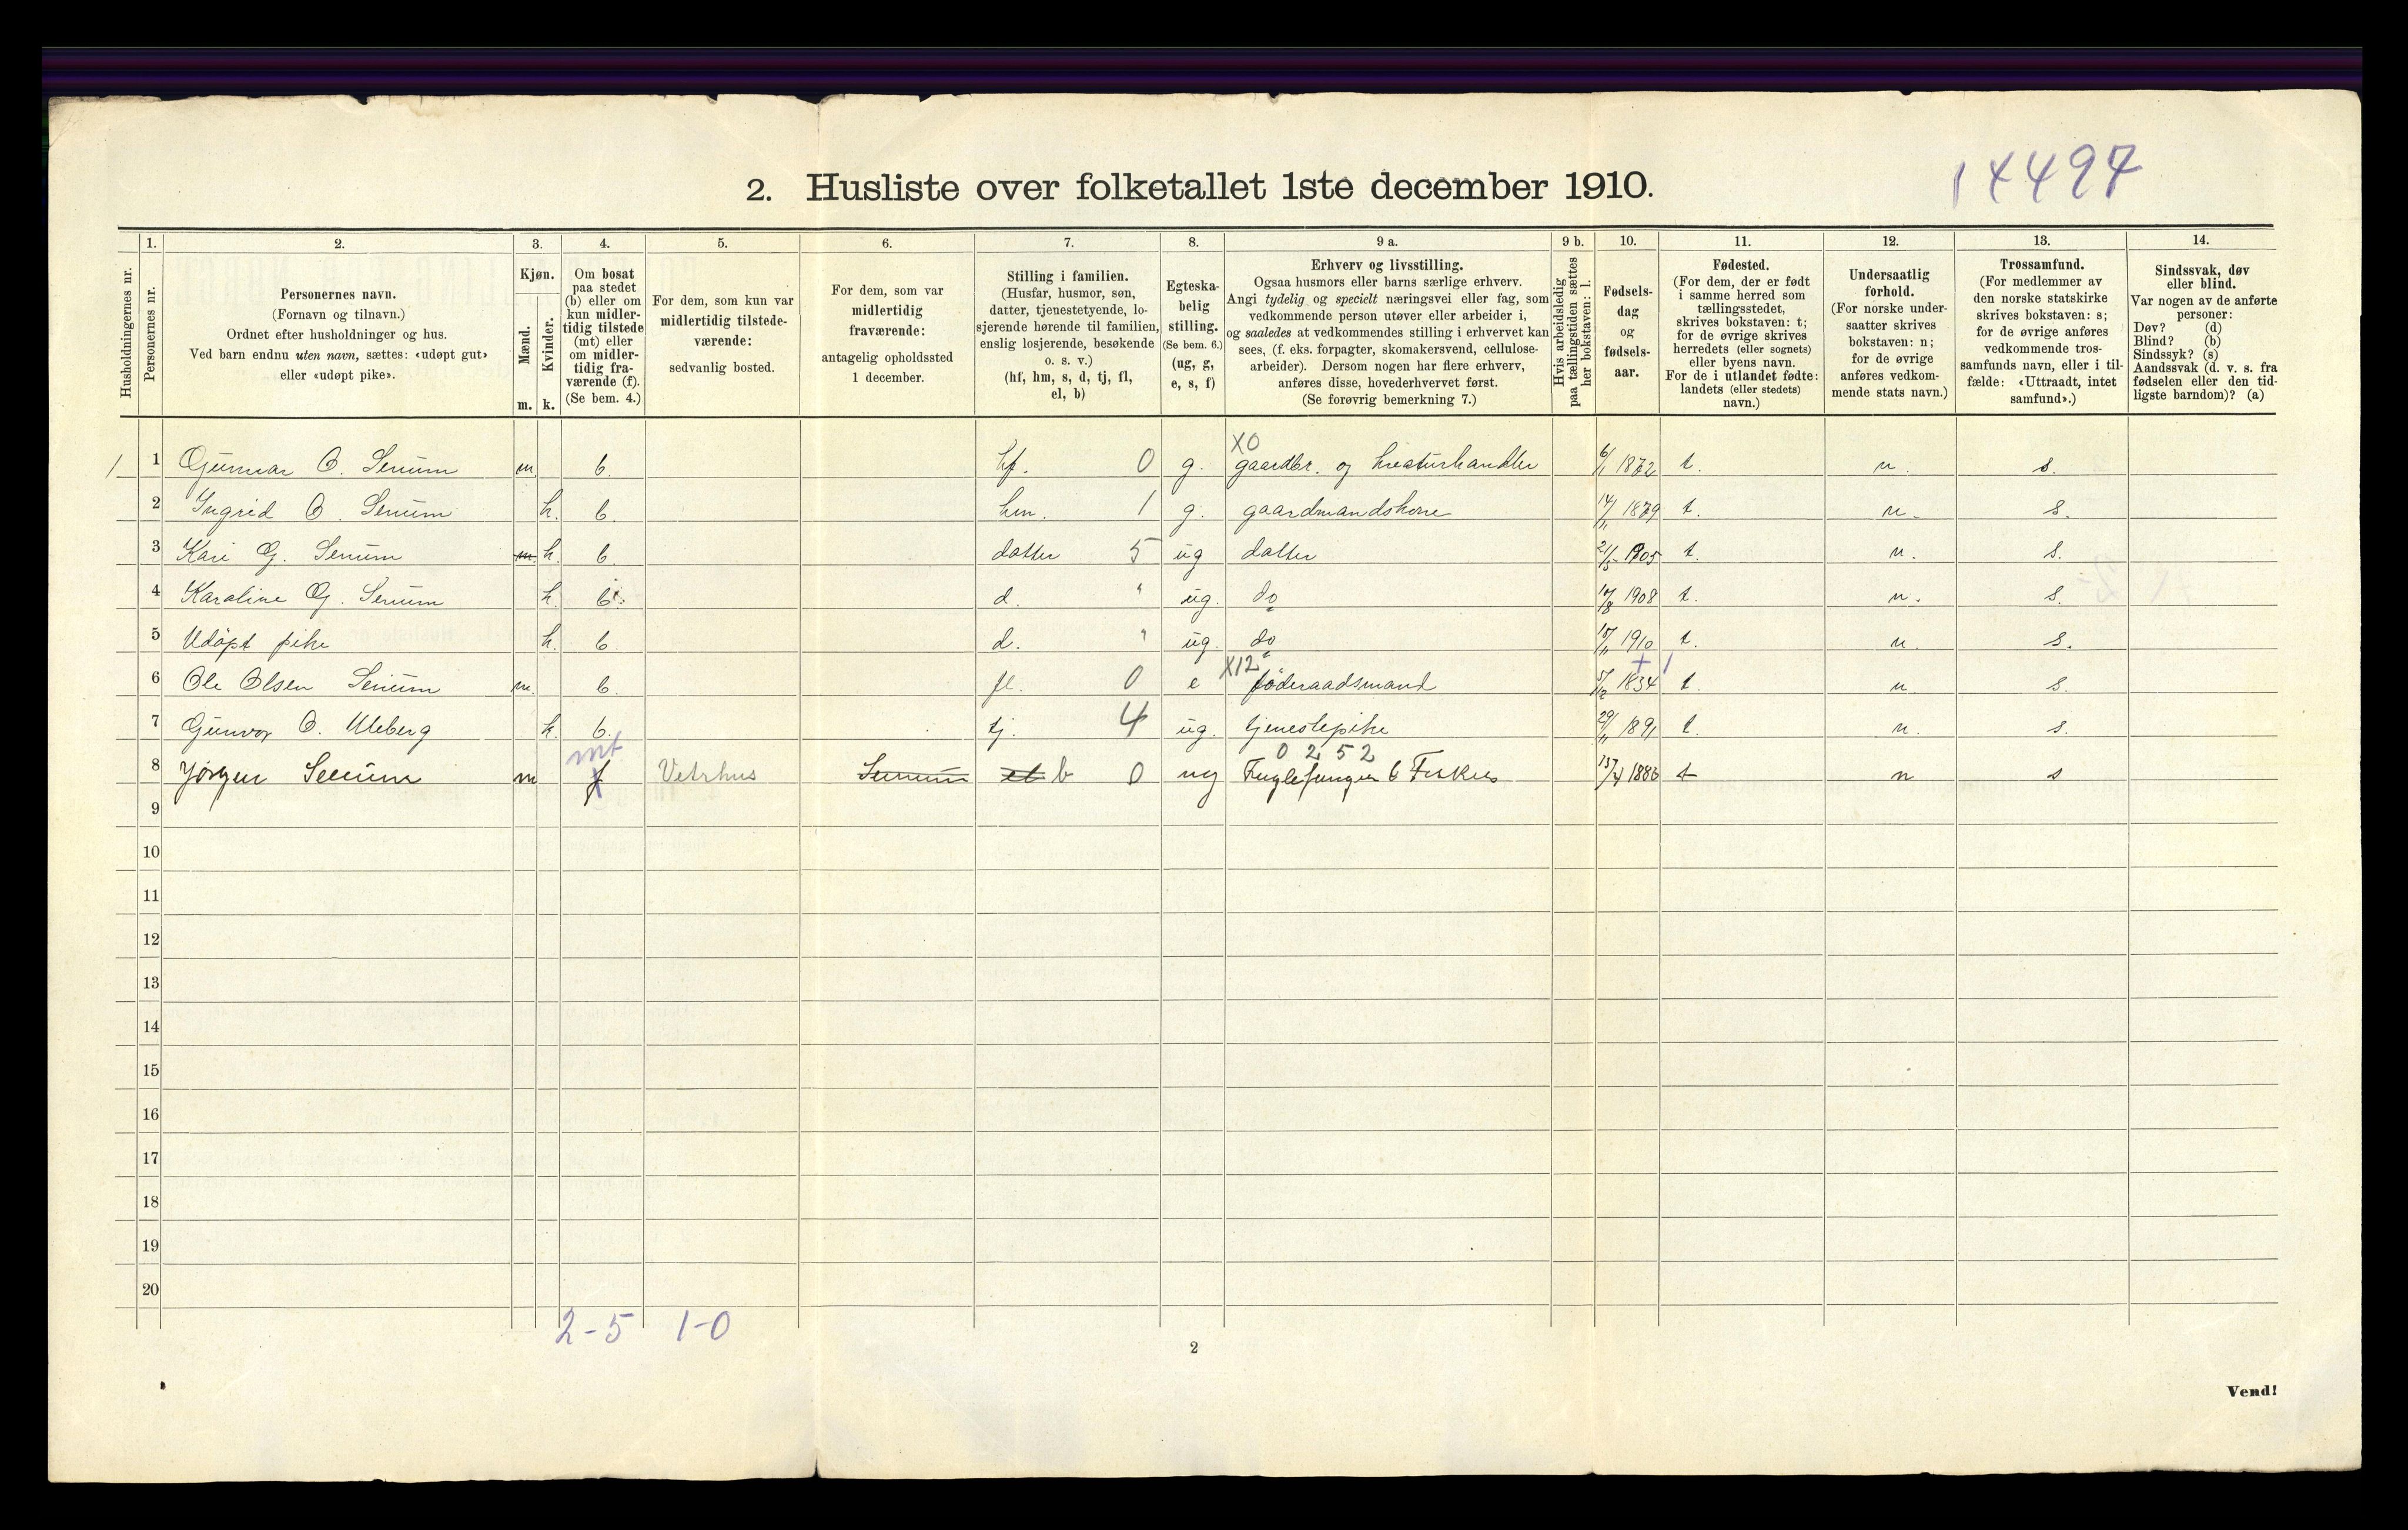 14497
2. Husliste over folketallet 1ste december 1910.
Husholdningernes nr.
1.
Personernes nr.
2.
Personernes navn.
(Fornavn og tilnavn.)
Ordnet efter husholdninger og hus.
Ved barn endnu uten navn, sættes: «udøpt gut»
eller «udøpt pike».
3.
Kjøn.
Mænd.
Kvinder.
m. k.
4.
Om bosat
paa stedet
(b) eller om
kun midler-
tidig tilstede
(mt) eller
om midler-
tidig fra-
værende (f).
(Se bem. 4.)
5.
For dem, som kun var
midlertidig tilstede-
værende:
sedvanlig bosted.
6.
For dem, som var
midlertidig
fraværende:
antagelig opholdssted
1 december.
7.
Stilling i familien.
(Husfar, husmor, søn,
datter, tjenestetyende, lo-
sjerende hørende til familien,
enslig losjerende, besøkende
o. s. v.)
(hf, hm, s, d, tj, fl,
el, b)
8.
Egteska-
belig
stilling.
(Se bem. 6.)
(ug, g,
e, s, f)
9 a.
Erhverv og livsstilling.
Ogsaa husmors eller barns særlige erhverv.
Angi tydelig og specielt næringsvei eller fag, som
vedkommende person utøver eller arbeider i,
og saaledes at vedkommendes stilling i erhvervet kan
sees, (f. eks. forpagter, skomakersvend, cellulose-
arbeider). Dersom nogen har flere erhverv,
anføres disse, hovederhvervet først.
(Se forøvrig bemerkning 7.)
9 b.
Hvis arbeidsledig
paa tællingstiden sættes
her bokstaven: l.
10.
Fødsels-
dag
og
fødsels-
aar.
11.
Fødested.
(For dem, der er født
i samme herred som
tællingsstedet,
skrives bokstaven: t;
for de øvrige skrives
herredets (eller sognets)
eller byens navn.
For de i utlandet fødte:
landets (eller stedets)
navn.)
12.
Undersaatlig
forhold.
(For norske under-
saatter skrives
bokstaven: n;
for de øvrige
anføres vedkom-
mende stats navn.)
13.
Trossamfund.
(For medlemmer av
den norske statskirke
skrives bokstaven: s;
for de øvrige anføres
vedkommende tros-
samfunds navn, eller i til-
fælde: «Uttraadt, intet
samfund».)
14.
Sindssvak, døv
eller blind.
Var nogen av de anførte
personer:
Døv? (d)
Blind? (b)
Sindssyk? (s)
Aandssvak (d. v. s. fra
fødselen eller den tid-
ligste barndom)? (a)
X0
1 1 Gunnar O. Senum m. b. hf. 0 g. gaardbr. og kreaturhandler 6/1 1872 t. n. s.
2 Ingrid O. Senum k. b. hm. 1 g. gaardmandskone 14/11 1879 t. n. s.
3 Kari G. Senum m. k. b. datter 5 ug datter 21/5 1905 t. n. s.
4 Karoline G. Senum k. b. d. " ug. do 17/8 1908 t. n. s.
5 Udöpt pike k. b. d. " ug. do 15/11 1910 t. n. s.
X12 + 1
6 Ole Olsen Senum m. b. fl. 0 e föderaadsmand 5/2 1834 t. n. s.
7 Gunvor O. Uleberg k. b. tj. 4 ug. tjenestepike 29/11 1891 t. n. s.
mt 0 2 5 2
8 Jörgen Senum m f Vetrhus Senum el b 0 ug Fuglefanger & Fisker 13/4 1886 t n s
9
10
11
12
13
14
15
16
17
18
19
20
2-5 1-0
2
Vend!